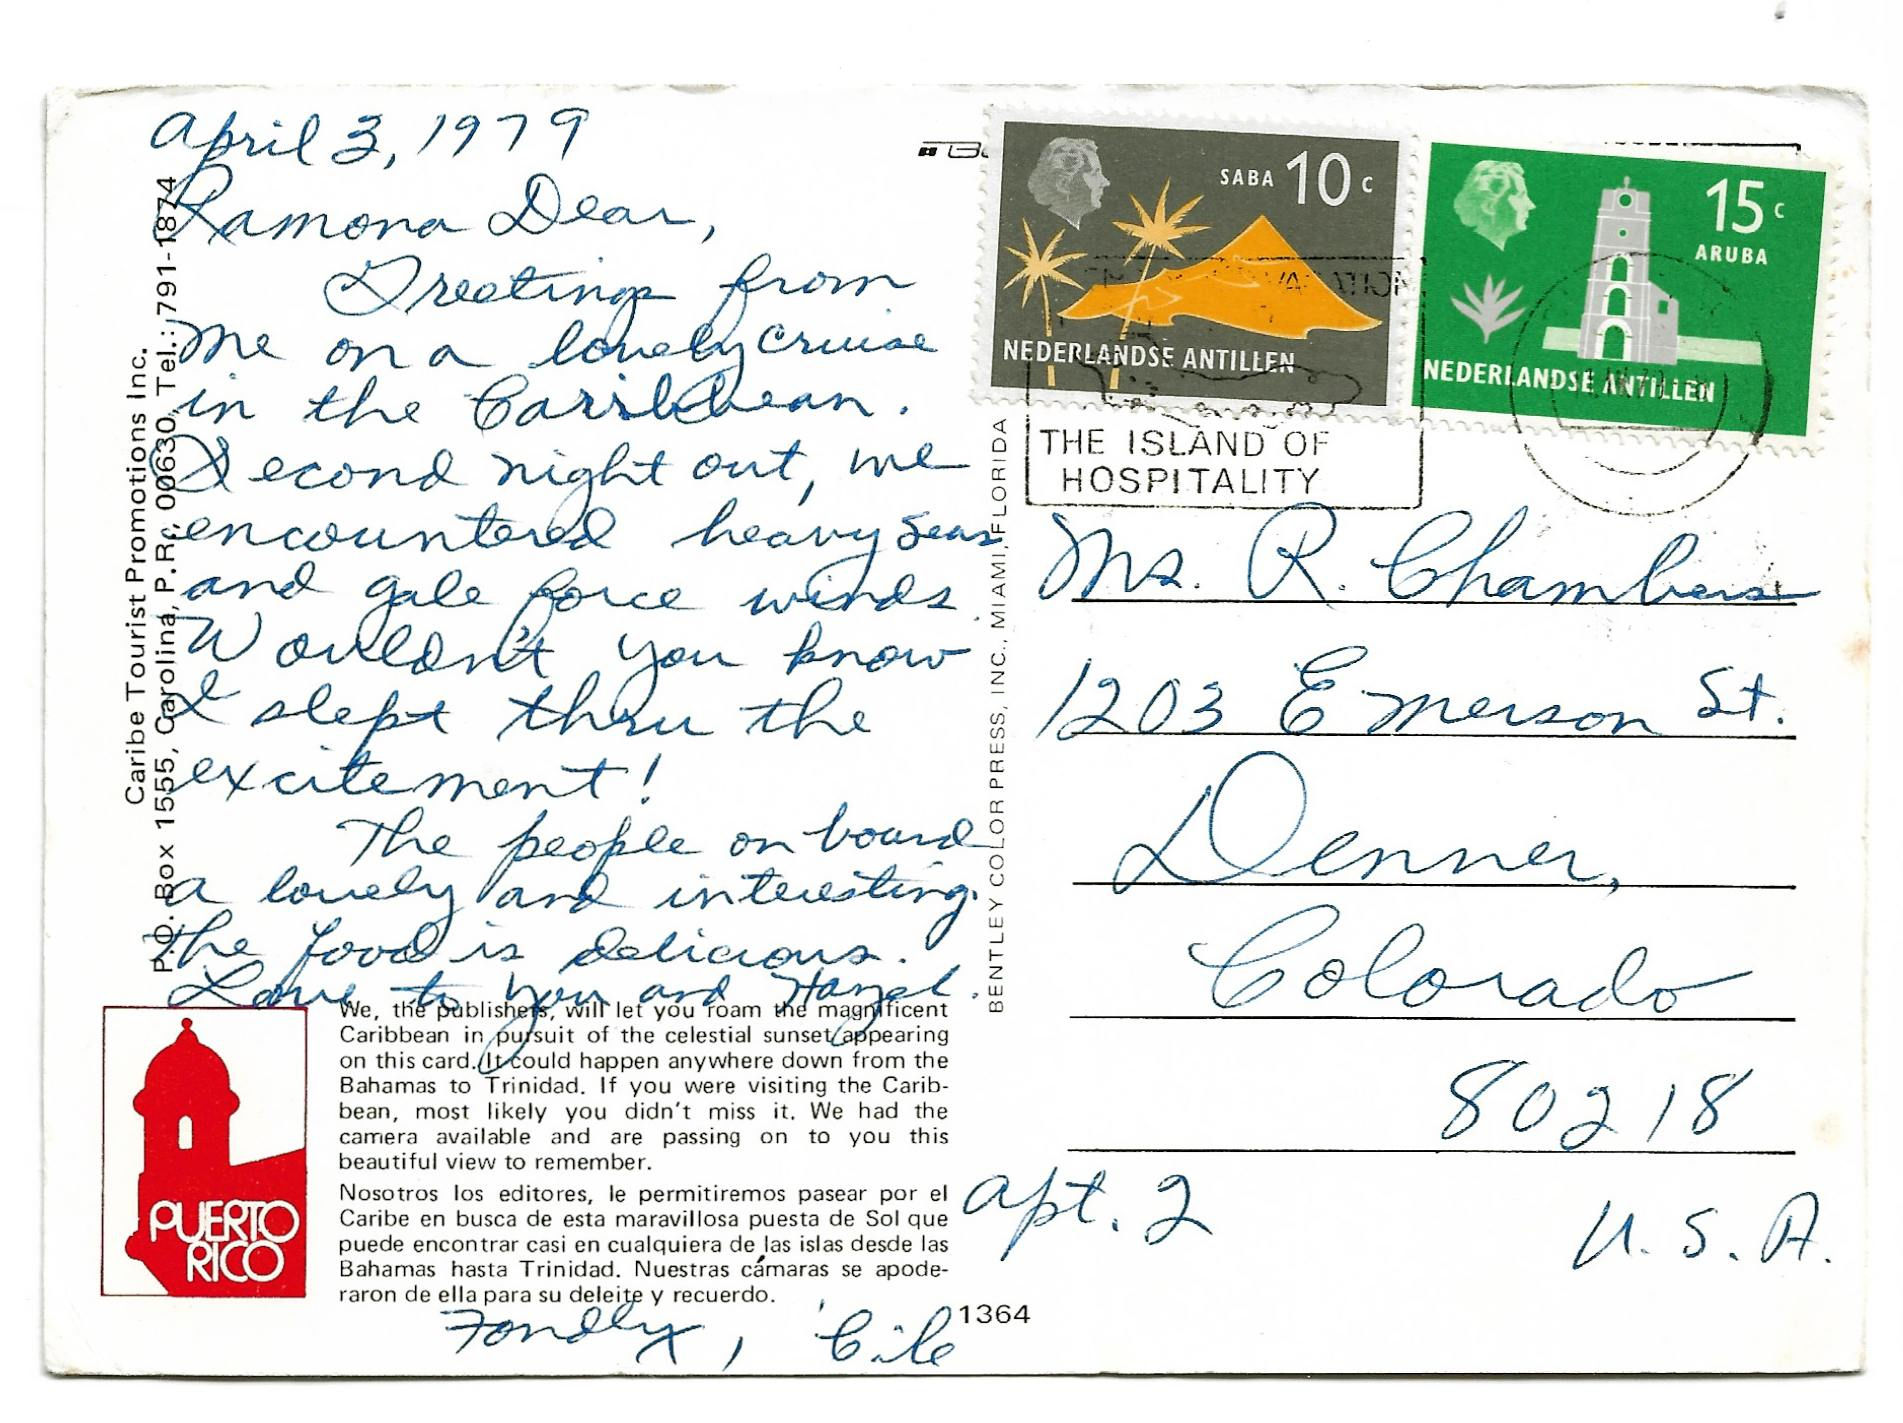 April 3, 1979
Ramona Dear,
Greetings from
me on a lovely cruise
in the Carribbean.
Second night out, we
encountered heavy seas
and gale force winds.
Wouldn't you know
I slept thru the
excitement!
The people on board
a lovely and interesting.
the food is delicious.
Love to you and Hazel.
Fondly,
Caribe Tourist Promotions Inc.
P.O. Box 1555, Carolina, P.R. 00630 Tel.: 791-1874
PUERTO
RICO
We, the publishers, will let you roam the magnificent
Caribbean in pursuit of the celestial sunset appearing
on this card. It could happen anywhere down from the
Bahamas to Trinidad. If you were visiting the Carib-
bean, most likely you didn't miss it. We had the
camera available and are passing on to you this
beautiful view to remember.
Nosotros los editores, le permitiremos pasear por el
Caribe en busca de esta maravillosa puesta de Sol que
puede encontrar casi en cualquiera de las islas desde las
Bahamas hasta Trinidad. Nuestras cámaras se apode-
raron de ella para su deleite y recuerdo.
1364
BENTLEY COLOR PRESS, INC., MIAMI, FLORIDA
SABA 10 c
NEDERLANDSE ANTILLEN
15 c
ARUBA
NEDERLANDSE ANTILLEN
THE ISLAND OF
HOSPITALITY
Ms. R. Chambers
1203 Emerson St.
Denver,
Colorado
80218
apt. 2
U. S. A.